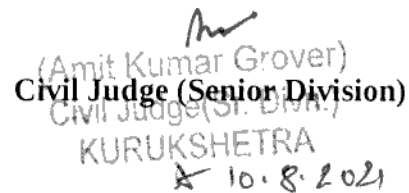 (Amit Kumar Grover)
Civil Judge (Senior Division)
Civil Judge(Sr. Divn.)
KURUKSHETRA
10.8.2021